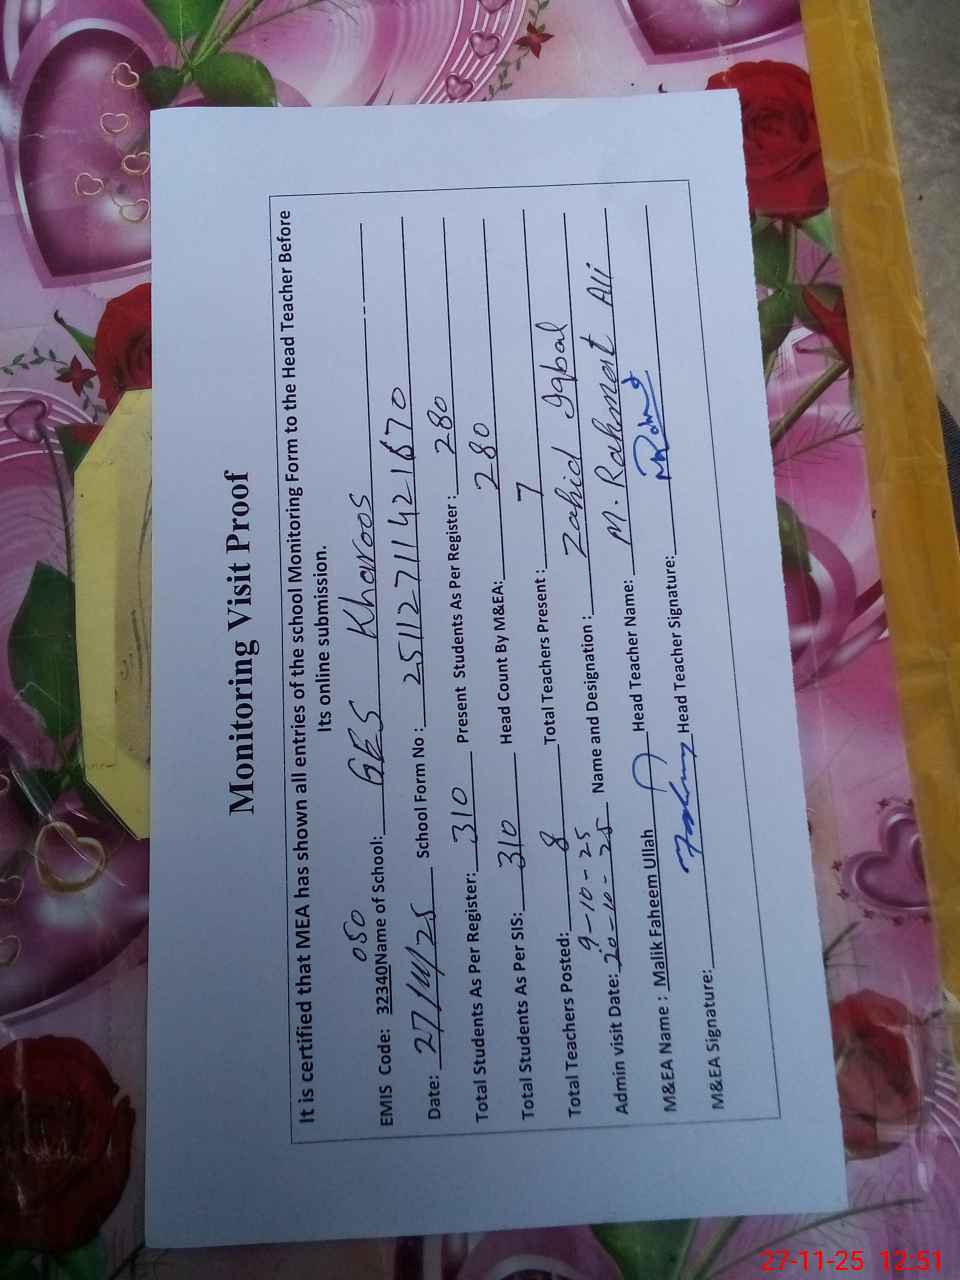 Monitoring Visit Proof
It is certified that MEA has shown all entries of the school Monitoring Form to the Head Teacher Before
Its online submission.
EMIS Code: 32340 050 Name of School: GES Kharoos
Date: 27/11/25 School Form No : 2511271142167 0
Total Students As Per Register: 310 Present Students As Per Register : 280
Total Students As Per SIS: 310 Head Count By M&EA: 280
Total Teachers Posted: 8 Total Teachers Present : 7
9-10-25
Admin visit Date: 20-10-25 Name and Designation : Zahid Iqbal
M&EA Name : Malik Faheem Ullah Head Teacher Name: M. Rahmat Ali
M&EA Signature: Head Teacher Signature:
27-11-25 12:51